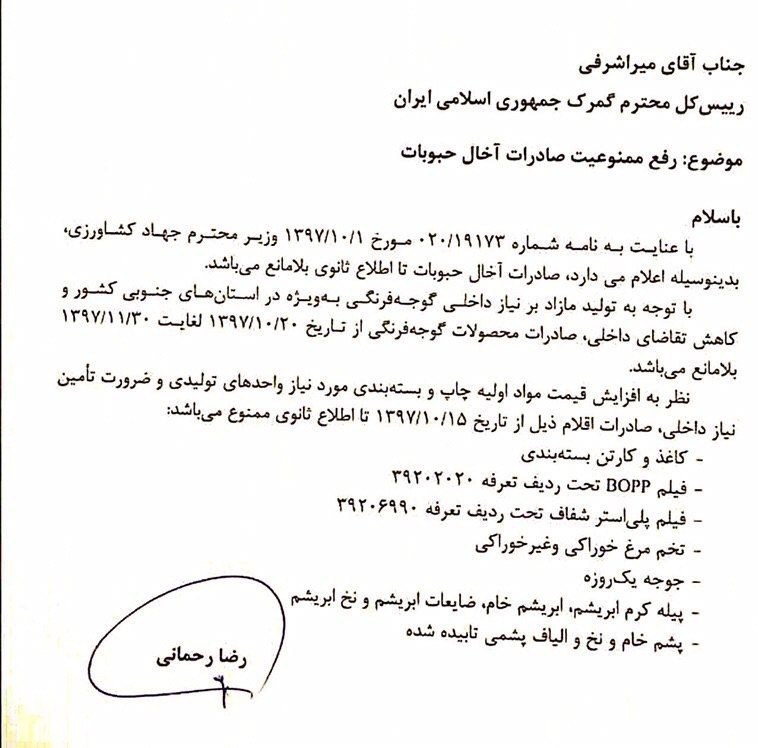 جناب آقای میراشرفی
رییس‌کل محترم گمرک جمهوری اسلامی ایران
موضوع: رفع ممنوعیت صادرات آخال حبوبات
باسلام
با عنایت به نامه شماره ۰۲۰/۱۹۱۷۳ مورخ ۱۳۹۷/۱۰/۱ وزیر محترم جهاد کشاورزی،
بدینوسیله اعلام می دارد، صادرات آخال حبوبات تا اطلاع ثانوی بلامانع می‌باشد.
با توجه به تولید مازاد بر نیاز داخلی گوجه‌فرنگی به‌ویژه در استان‌های جنوبی کشور و
کاهش تقاضای داخلی، صادرات محصولات گوجه‌فرنگی از تاریخ ۱۳۹۷/۱۰/۲۰ لغایت ۱۳۹۷/۱۱/۳۰
بلامانع می‌باشد.
نظر به افزایش قیمت مواد اولیه چاپ و بسته‌بندی مورد نیاز واحدهای تولیدی و ضرورت تأمین
نیاز داخلی، صادرات اقلام ذیل از تاریخ ۱۳۹۷/۱۰/۱۵ تا اطلاع ثانوی ممنوع می‌باشد:
- کاغذ و کارتن بسته‌بندی
- فیلم BOPP تحت ردیف تعرفه ۳۹۲۰۲۰۲۰
- فیلم پلی‌استر شفاف تحت ردیف تعرفه ۳۹۲۰۶۹۹۰
- تخم مرغ خوراکی وغیرخوراکی
- جوجه یک‌روزه
- پیله کرم ابریشم، ابریشم خام، ضایعات ابریشم و نخ ابریشم
- پشم خام و نخ و الیاف پشمی تابیده شده
رضا رحمانی